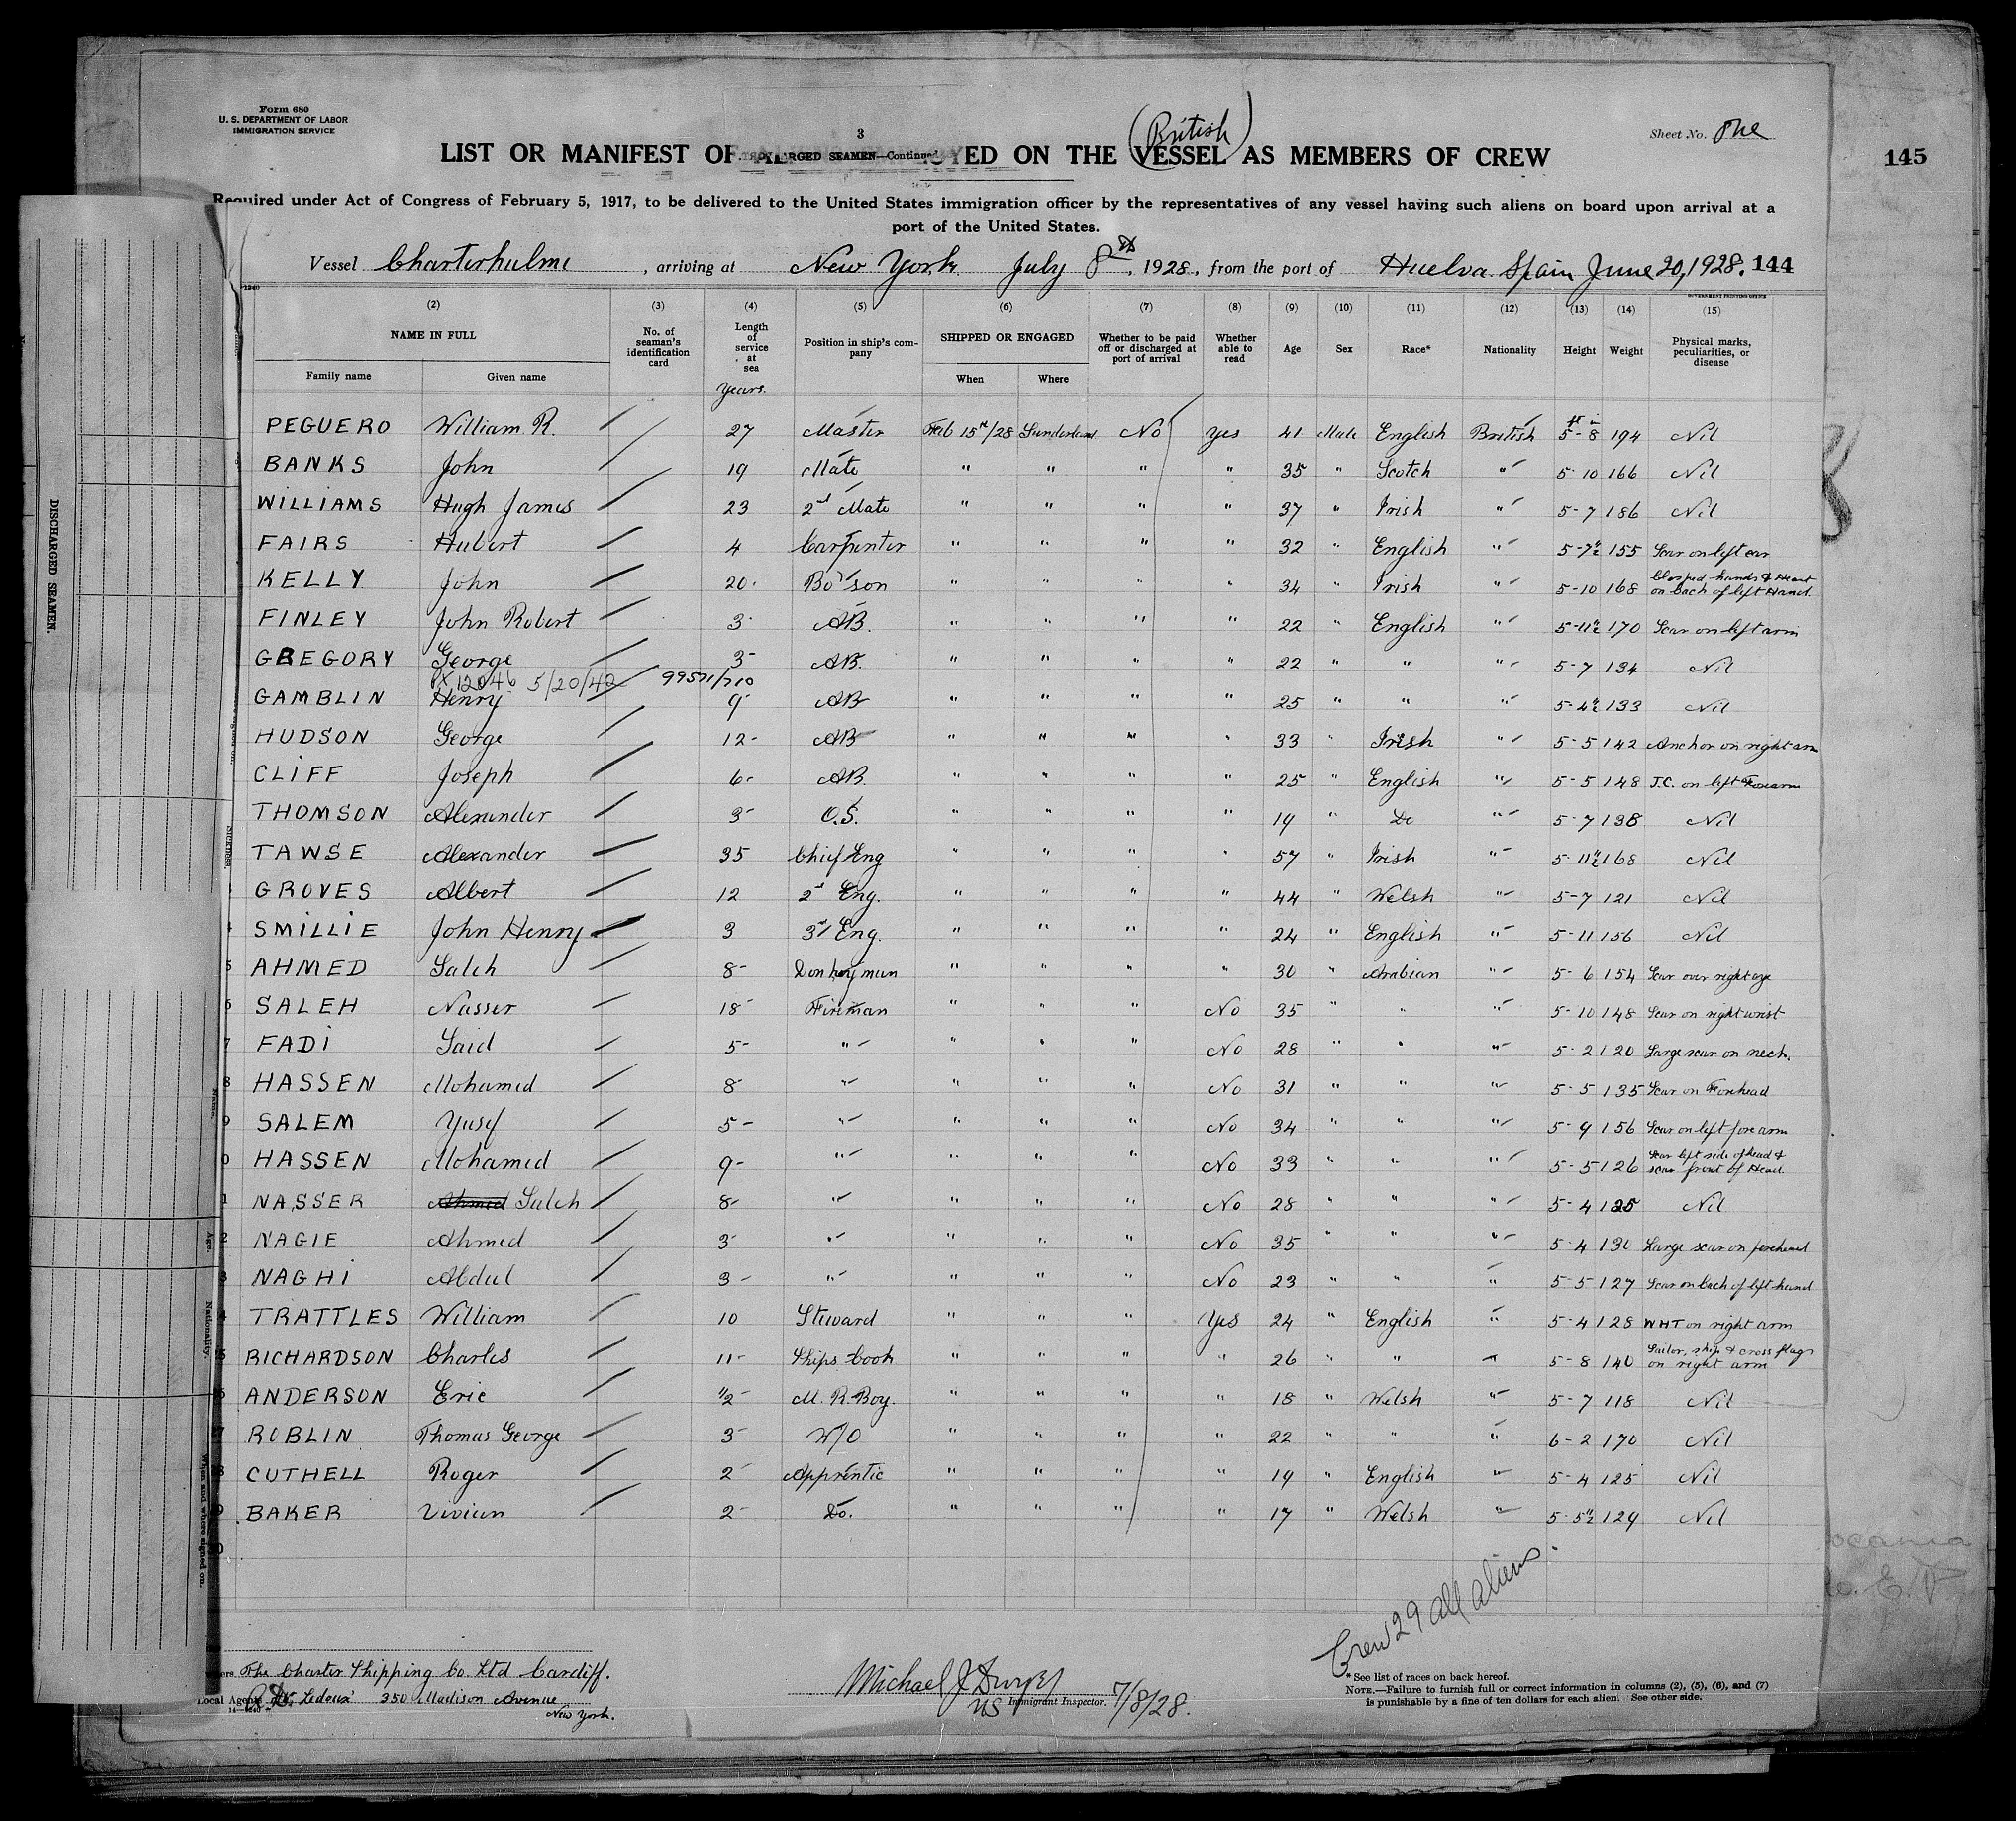 Form 680
U. S. DEPARTMENT OF LABOR
IMMIGRATION SERVICE
3
(British)
Sheet No. One
LIST OR MANIFEST OF YED ON THE VESSEL AS MEMBERS OF CREW
SEAMEN—Continued
145
Required under Act of Congress of February 5, 1917, to be delivered to the United States immigration officer by the representatives of any vessel having such aliens on board upon arrival at a
port of the United States.
Vessel Charterhulme, arriving at New York July 8th, 1928, from the port of Huelva Spain June 20, 1928. 144
(2) (3) (4) (5) (6) (7) (8) (9) (10) (11) (12) (13) (14) (15)
NAME IN FULL No. of seaman's identification card Length of service at sea Position in ship's company SHIPPED OR ENGAGED Whether to be paid off or discharged at port of arrival Whether able to read Age Sex Race* Nationality Height Weight Physical marks, peculiarities, or disease
Family name Given name When Where
Years.
ft in
PEGUERO William R. 27 Master Feb 15th/28 Sunderland No Yes 41 Male English British 5-8 194 Nil
BANKS John 19 Mate " " " " 35 " Scotch " 5-10 166 Nil
WILLIAMS Hugh James 23 2nd Mate " " " " 37 " Irish " 5-7 186 Nil
FAIRS Hubert 4 Carpenter " " " " 32 " English " 5-7½ 155 Scar on left ear
KELLY John 20 Bo'son " " " " 34 " Irish " 5-10 168 Clasped hands & Heart on back of left Hand.
FINLEY John Robert 3 AB. " " " " 22 " English " 5-11½ 170 Scar on left arm
GREGORY George 3 AB. " " " " 22 " " " 5-7 134 Nil
12046 5/20/42 99571/710
GAMBLIN Henry 9 AB " " " " 25 " " " 5-4½ 133 Nil
HUDSON George 12 AB " " " " 33 " Irish " 5-5 142 Anchor on right arm
CLIFF Joseph 6 AB. " " " " 25 " English " 5-5 148 J.C. on left Forearm
THOMSON Alexander 3 O.S. " " " " 19 " Do " 5-7 138 Nil
TAWSE Alexander 35 Chief Eng " " " " 57 " Irish " 5-11½ 168 Nil
GROVES Albert 12 2nd Eng. " " " " 44 " Welsh " 5-7 121 Nil
SMILLIE John Henry 3 3rd Eng. " " " " 24 " English " 5-11 156 Nil
AHMED Saleh 8 Donkeyman " " " " 30 " Arabian " 5-6 154 Scar over right eye
SALEH Nasser 18 Fireman " " " No 35 " " " 5-10 148 Scar on right wrist
FADI Said 5 " " " " No 28 " " " 5-2 120 Large scar on neck.
HASSEN Mohamed 8 " " " " No 31 " " " 5-5 135 Scar on Forehead
SALEM Yusef 5 " " " " No 34 " " " 5-9 156 Scar on left forearm
HASSEN Mohamed 9 " " " " No 33 " " " 5-5 126 Scar left side of head & scar front of Head.
NASSER Ahmed Saleh 8 " " " " No 28 " " " 5-4 125 Nil
NAGIE Ahmed 3 " " " " No 35 " " " 5-4 130 Large scar on forehead
NAGHI Abdul 3 " " " " No 23 " " " 5-5 127 Scar on back of left hand
TRATTLES William 10 Steward " " " Yes 24 " English " 5-4 128 WHT on right arm
RICHARDSON Charles 11 Ships Cook " " " " 26 " " " 5-8 140 Sailor, ship & cross flags on right arm
ANDERSON Eric ½ M. R. Boy. " " " " 18 " Welsh " 5-7 118 Nil
ROBLIN Thomas George 3 W/O " " " " 22 " " " 6-2 170 Nil
CUTHELL Roger 2 Apprentic " " " " 19 " English " 5-4 125 Nil
BAKER Vivian 2 Do. " " " " 17 " Welsh " 5-5½ 129 Nil
30
Crew 29 all aliens
The Charter Shipping Co. Ltd Cardiff.
Local Agents Ledoux 350 Madison Avenue
New York.
14—1240
Michael J Dwyer
US Immigrant Inspector. 7/8/28.
*See list of races on back hereof.
NOTE.—Failure to furnish full or correct information in columns (2), (5), (6), and (7)
is punishable by a fine of ten dollars for each alien. See other side.
DISCHARGED SEAMEN.
SICKNESS.
Name.
Age.
Nationality.
When and where signed on.